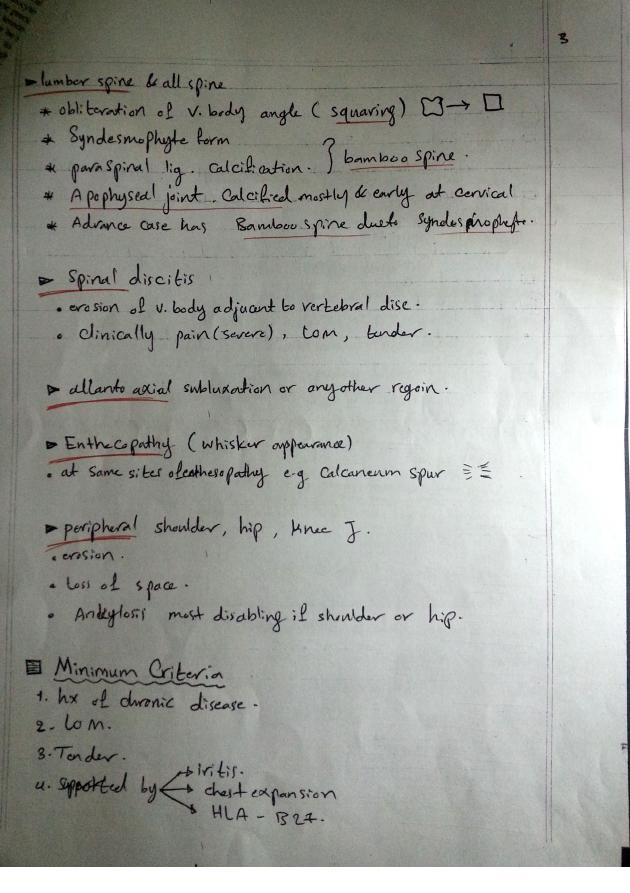 3
➤ lumber spine & all spine
* obliteration of v. body angle (squaring) →
* Syndesmophyte form
* paraspinal lig. Calcification. } bamboo spine.
* Apophyseal joint. Calcified mostly & early at cervical
* Advance case has Bamboo spine dueto Syndesmophyte.
➤ Spinal discitis
• erosion of v. body adjuant to vertebral disc.
• clinically pain (severe), LOM, tender.
➤ allanto axial subluxation or anyother regoin.
➤ Enthecopathy (whisker appearance)
• at same sites ofenthesopathy e.g. Calcaneum spur
➤ peripheral shoulder, hip, knee J.
• erosion.
• Loss of space.
• Ankylosis most disabling if shoulder or hip.
Minimum Criteria
1. hx of chronic disease.
2. LOM.
3. Tender.
4. supported by → iritis.
→ chest expansion
→ HLA - B27.